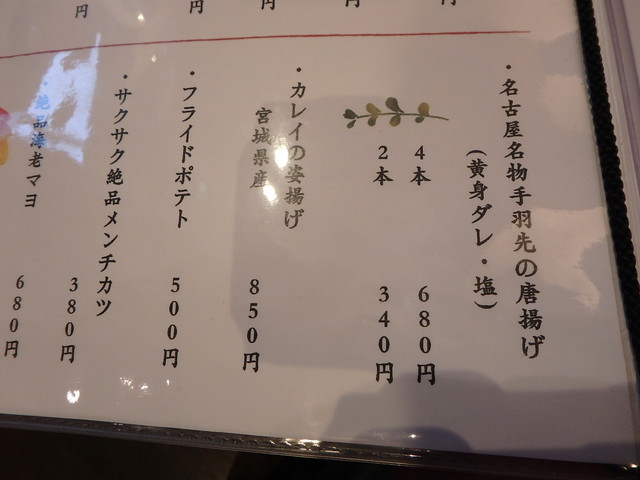 ・名古屋名物手羽先の唐揚げ
(黄身ダレ・塩)
4本 680円
2本 340円
・カレイの姿揚げ
宮城県産
850円
・フライドポテト
500円
・サクサク絶品メンチカツ
380円
・絶品海老マヨ
680円
円
円
円
円
円